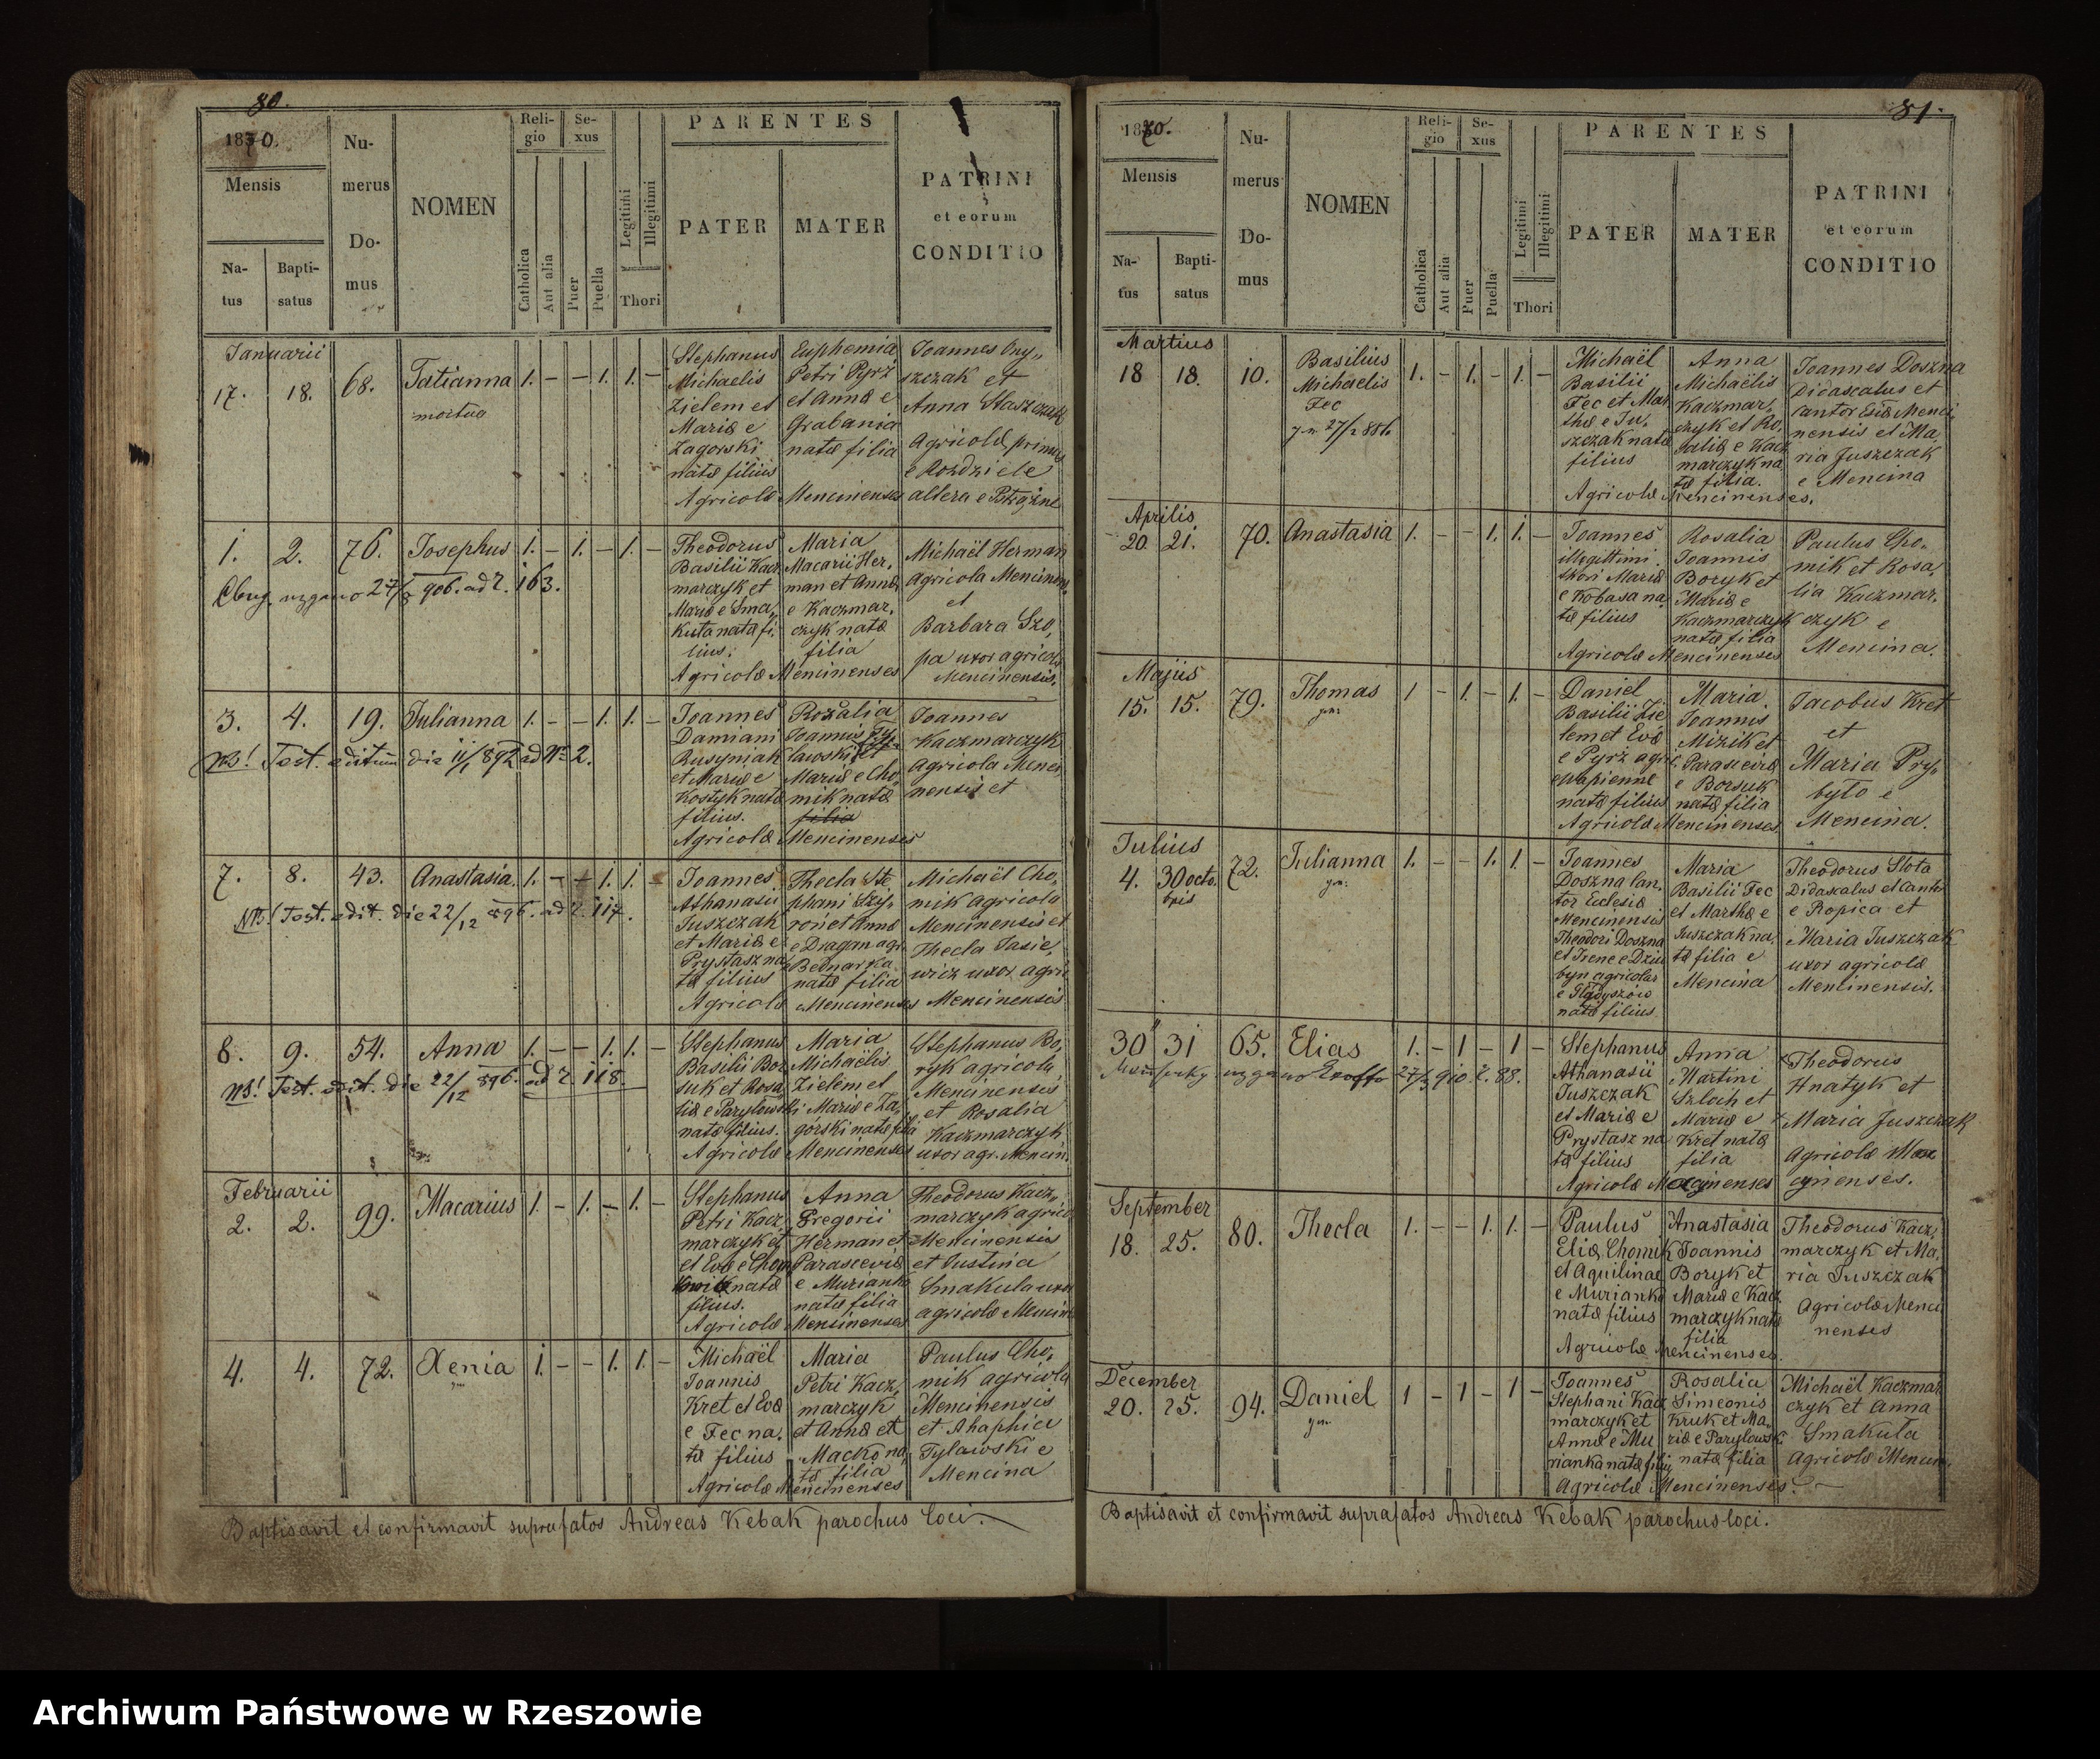 80.
1870.
Mensis
Na-
tus
Bapti-
satus
Nu-
merus
Do-
mus
NOMEN
Reli-
gio
Se-
xus
Catholica
Aut alia
Puer
Puella
Legitimi
Illegitimi
Thori
PARENTES
PATER
MATER
PATRINI
et eorum
CONDITIO
Januarii
17. 18. 68. Tatianna 1. – – 1. 1. –
mortua
Stephanus
Michaelis
Zielem et
Mariæ e
Zagorski
natæ filius
Euphemia
Petri Pyrz
et Annæ e
Grabania
natæ filia
Agricolæ Mencinenses
Joannes Ony„
szczak et
Anna
Agricolæ primus
e Rozdziele
altera e
1. 2. 76. Josephus 1. – 1. – 1. –
Theodorus
Basilii Kacz
marczyk et
Mariæ e Sma„
kuła natæ fi„
lius.
Maria
Macarii Her„
man et Annæ
e Kaczmar„
czyk natæ
filia
Agricolæ Mencinenses
Michaël Herman
Agricola Mencinens.
et
Barbara Szo„
pa uxor agricolæ
Mencinensis.
3. 4. 19. Julianna 1. – – 1. 1. –
NB! Test. editum die 11/1 892 ad N= 2.
Joannes
Damiani
Rusyniak
et Mariæ e
Kostyk natæ
filius.
Rozalia
Joannis Ty„
lawski et
Mariæ e Cho„
mik natæ
filia
Agricolæ Mencinenses
Joannes
Kaczmarczyk
Agricola Menci
nensis et
7. 8. 43. Anastasia. 1. – – 1. 1. –
NB! Test. edit. die 22/12 896. ad 2. 117.
Joannes
Athanasii
Juszczak
et Mariæ e
Prystasz na„
tæ filius
Thecla Ste
phani Szy„
ron et Annæ
e Dragan agr.
e Bednarka
natæ filia
Agricolæ Mencinenses
Michaël Cho„
mik agricola
Mencinensis et
Thecla Jasie„
wicz uxor agri
Mencinensis
8. 9. 54. Anna 1. – – 1. 1. –
NB! Test. edit. die 22/12 896. ad 2. 118.
Stephanus
Basilii Bor
suk et Rosa„
liæ e Parylowski
natæ filius.
Maria
Michaëlis
Zielem et
Mariæ e Za„
gorski natæ filia
Agricolæ Mencinenses
Stephanus Bo„
ryk agricola
Mencinensis
et Rosalia
Kaczmarczyk
uxor agr. Mencin.
Februarii
2. 2. 99. Macarius 1. – 1. – 1. –
Stephanus
Petri Kacz„
marczyk et
et Evæ e Chom
natæ
filius.
Anna
Gregorii
Herman et
Parasceviæ
e Murianka
natæ filia
Agricolæ Mencinenses
Theodorus Kacz„
marczyk agrico
Mencinensis
et Justina
Smakula uxor
agricolæ Mencin
4. 4. 72. Xenia 1. – – 1. 1. –
Michaël
Joannis
Kret et Evæ
e Fec na„
tæ filius
Maria
Petri Kacz„
marczyk
et Annæ et
Macko na„
tæ filia
Agricolæ Mencinenses
Paulus Cho„
mik agricola
Mencinensis
et Ahaphia
Tylawski e
Mencina
Baptisavit et confirmavit suprafatos Andreas Kebak parochus loci.
81.
1870.
Mensis
Na-
tus
Bapti-
satus
Nu-
merus
Do-
mus
NOMEN
Reli-
gio
Se-
xus
Catholica
Aut alia
Puer
Puella
Legitimi
Illegitimi
Thori
PARENTES
PATER
MATER
PATRINI
et eorum
CONDITIO
Martius
18 18. 10. Basilius 1. – 1. – 1. –
Michaelis
Fec
Michaël
Basilii
Fec et Mar
thæ e Ju„
szczak natæ
filius
Anna
Michaëlis
Kaczmar„
czyk et Ro„
saliæ e Kacz
marczyk na
tæ filia.
Agricolæ Mencinenses.
Joannes Doszna
Didascalus et
cantor Menci„
nensis et Ma„
ria Juszczak
e Mencina
Aprilis
20. 21. 70. Anastasia 1. – – 1. 1. –
Joannes
illegittimi
thori Mariæ
e Kobasa na„
tæ filius
Rosalia
Joannis
Boryk et
Mariæ e
Kaczmarczyk
natæ filia
Agricolæ Mencinenses
Paulus Cho„
mik et Rosa„
lia Kaczmar„
czyk e
Mencina.
Majus
15. 15. 79. Thomas 1 – 1. – 1. –
Daniel
Basilii Zie
lem et Evæ
e Pyrz agr.
e Wapienne
natæ filius
Maria
Joannis
Mizik et
Parasceviæ
e Borsuk
natæ filia
Agricolæ Mencinenses.
Jacobus Kret
et
Maria Pry„
było e
Mencina.
Julius
4. 30 octo„
bris
72. Julianna 1. – – 1. 1. –
Joannes
Doszna Can„
tor Eclesiæ
Mencinensis
Theodori Doszna
et Irene e Dziu
byn agricolas
e Gładyszów
natæ filius
Maria
Basilii Fec
et Marthæ e
Juszczak na„
tæ filia e
Mencina
Theodorus Słota
Didascalus et Cantor
e Ropica et
Maria Juszczak
uxor agricolæ
Mencinensis.
30 31 65. Elias 1. – 1 – 1 –
Stephanus
Athanasii
Juszczak
et Mariæ e
Prystasz na
tæ filius
Anna
Martini
Szlach et
Mariæ e
Kret natæ
filia
Theodorus
Hnatyk et
Maria Juszczak
September
18. 25. 80. Thecla 1. – – 1. 1. –
Paulus
Eliæ Chomik
et Aquilinae
e Murianka
natæ filius
Anastasia
Joannis
Boryk et
Mariæ e Kacz
marczyk natæ
filia
Agricolæ Mencinenses.
Theodorus Kacz„
marczyk et Ma„
ria Juszczak
Agricolæ Menci
nenses
December
20. 25. 94. Daniel 1 – 1 – 1 –
Joannes
Stephani Kacz
marczyk et
Annæ e Mu
rianka natæ filius
Rosalia
Simeonis
Kruk et Ma„
riæ e Parylowski
natæ filia
Agricolæ Mencinenses.
Michaël Kaczmar
czyk et Anna
Smakuła
Agricolæ Mencin.
Baptisavit et confirmavit suprafatos Andreas Kebak parochus loci.
Archiwum Państwowe w Rzeszowie